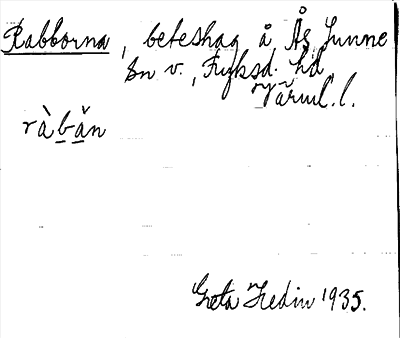 Rabborna, beteshag å Ås, Sunne
sn v., Fryksd. hd,
Värml. l.
ràbăn
Greta Hedin 1935.